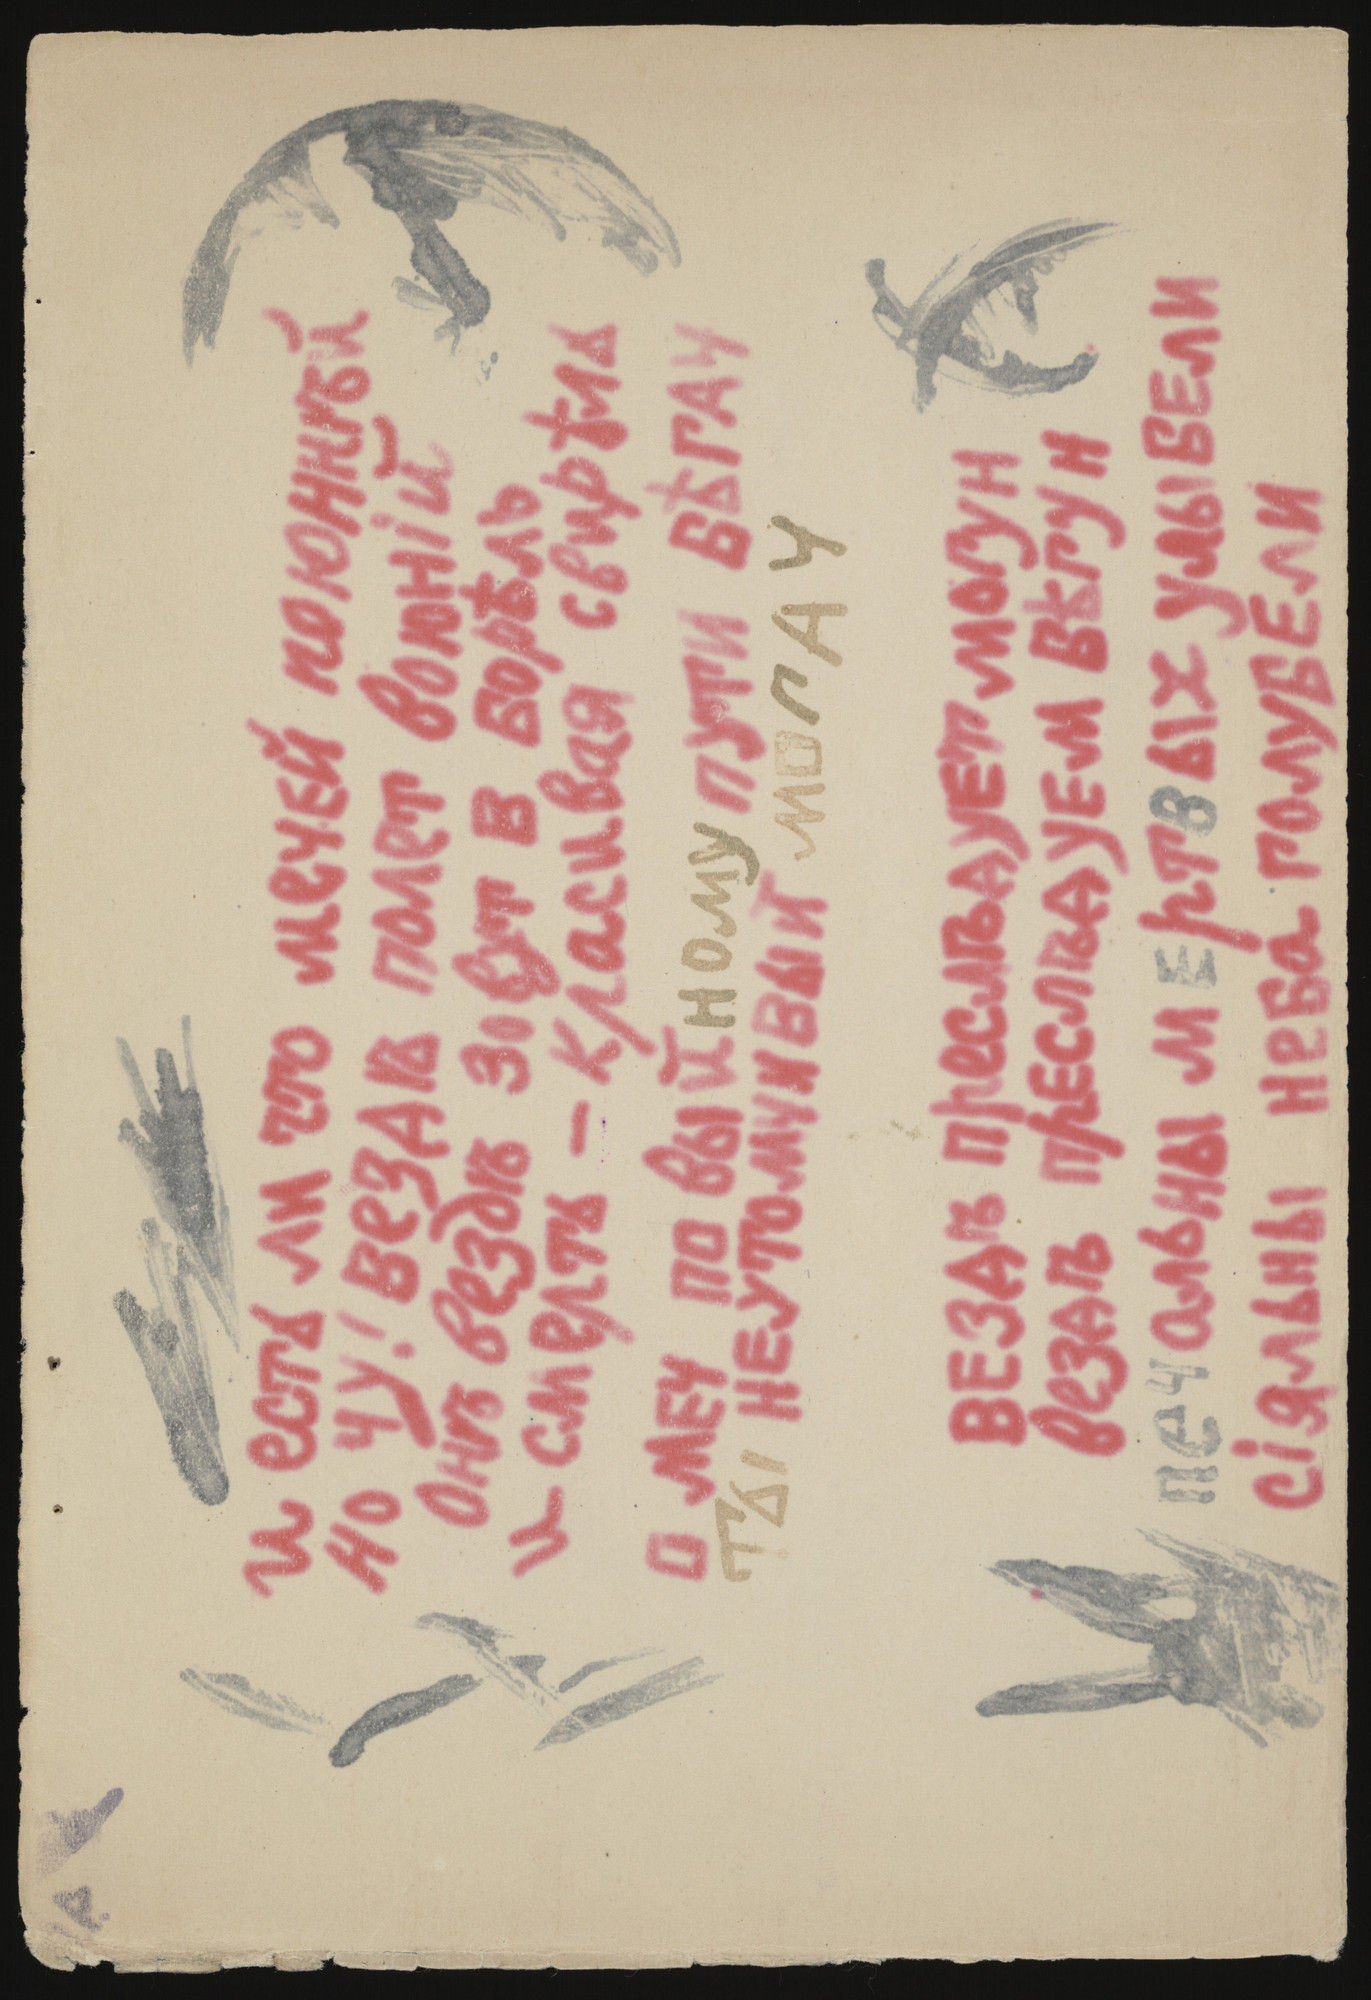 и есть ли что мечей поюннѣй
но чу! вездѣ полет воюнiй
Онѣ вездѣ зовут в борѣль
и смерть – красивая свирѣль
о меч по выйному пути бѣгач
ты неутомчивый могач
ВЕЗДѢ преслѣдует могун
вездѣ преслѣдуем бѣгун
печальны мертвых улыбели
сiяльны неба голубели